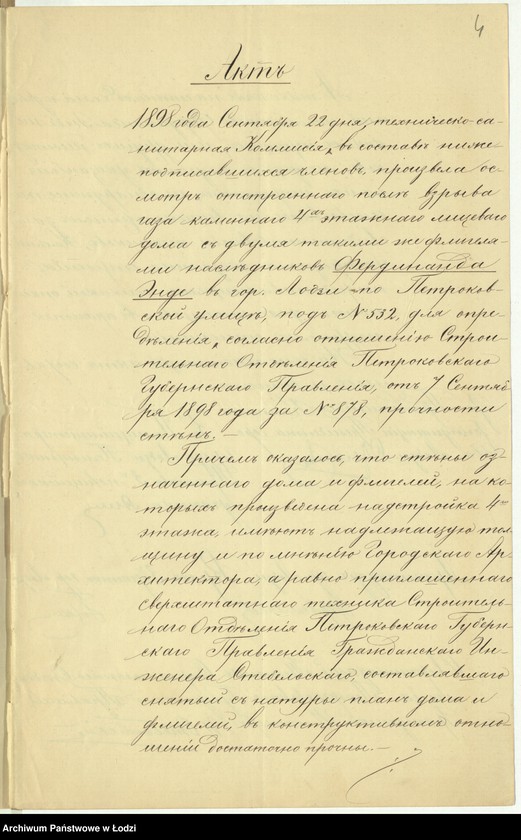 4
Актъ
1898 года Сентября 22 дня, техническо-са-
нитарная Коммисія, въ составѣ ниже
подписавшихся членовъ, произвела ос-
мотръ отстроеннаго послѣ взрыва
газа каменнаго 4хъ этажнаго лицеваго
дома съ двумя такими же флигеля-
ми наслѣдниковъ Фердинанда
Энде въ гор. Лодзи по Петроков-
ской улицѣ, подъ № 532, для опре-
дѣленія, согласно отношенію Строи-
тельнаго Отдѣленія Петроковскаго
Губернскаго Правленія, отъ 7 Сентяб-
ря 1898 года за № 878, прочности
стѣнъ.—
Причемъ оказалось, что стѣны оз-
наченнаго дома и флигелей, на ко-
торыхъ произведена надстройка 4го
этажа, имѣютъ надлежащую тол-
щину и по мнѣнію Городскаго Ар-
хитектора, а равно приглашеннаго
сверхштатнаго техника Строитель-
наго Отдѣленія Петроковскаго Губерн-
скаго Правленія Гражданскаго Ин-
женера Стебельскаго, составлявшаго
снятый съ натуры планъ дома и
флигелей, въ конструктивномъ отно-
шеніи достаточно прочны.—
Archiwum Państwowe w Łodzi